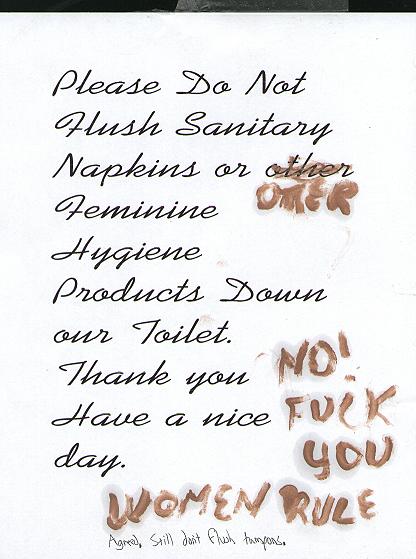 Please Do Not
Flush Sanitary
Napkins or other
OTTER
Feminine
Hygiene
Products Down
our Toilet.
Thank you
Have a nice
day.
NO!
FUCK
YOU
WOMEN RULE
Agreed, still don't flush tampons.